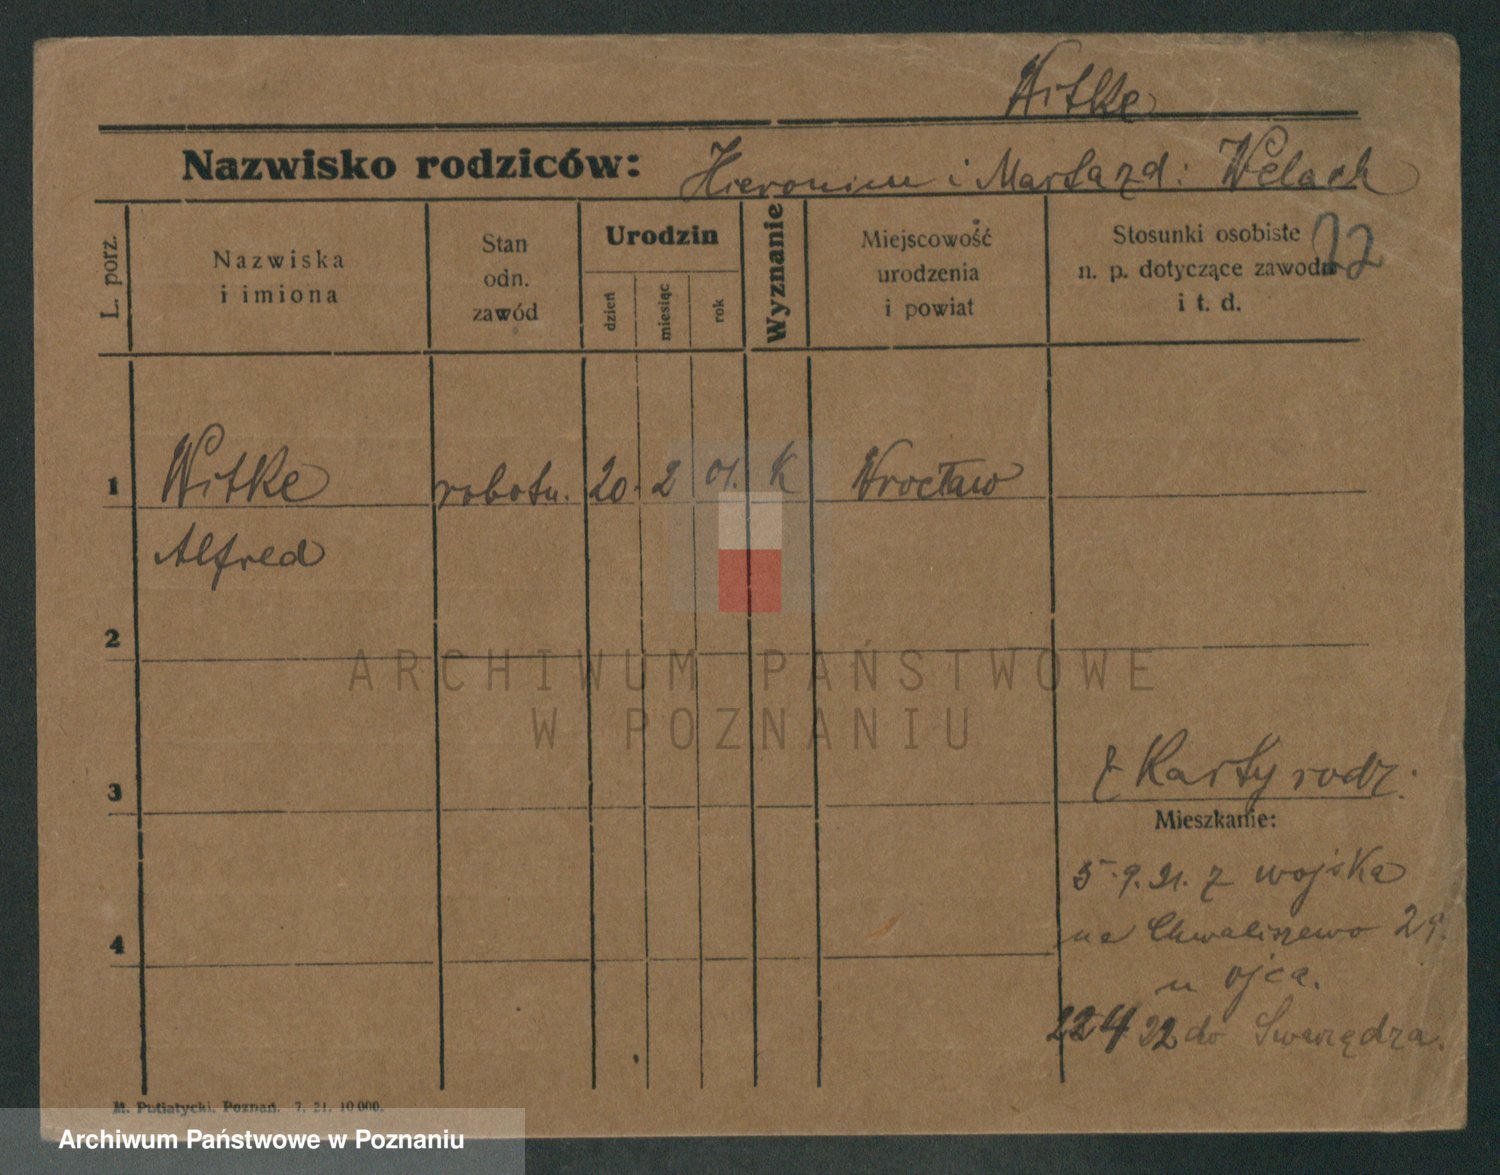 Witke
Nazwisko rodziców: Hieronim i Marta zd: Welach
L. porz.
Nazwiska
i imiona
Stan
odn.
zawód
Urodzin
dzień
miesiąc
rok
Wyznanie
Miejscowość
urodzenia
i powiat
Stosunki osobiste
n. p. dotyczące zawodu
i t. d.
22
1 Witke robotn. 20. 2 01. K Wrocław
Alfred
2
ARCHIWUM PAŃSTWOWE
W POZNANIU
3
z Karty rodz.
Mieszkanie:
5.9.21. z wojska
na Chwaliszewo
4
u ojca.
22 4 22 do Swarzędza.
M. Putiatycki. Poznań. 7. 21. 10 000.
Archiwum Państwowe w Poznaniu